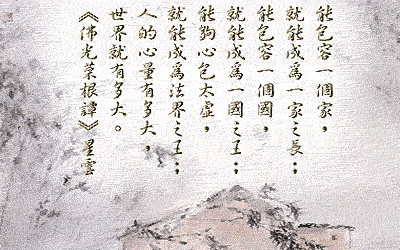 能包容一個家，
就能成為一家之長；
能包容一個國，
就能成為一國之王；
能夠心包太虛，
就能成為法界之王；
人的心量有多大，
世界就有多大。
《佛光菜根譚》星雲